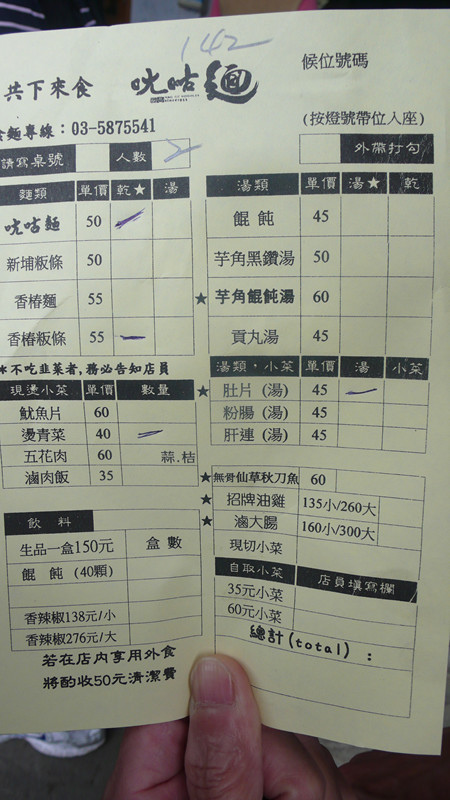 142
共下來食 咣咕麵 候位號碼
食麵專線：03-5875541 (按燈號帶位入座)
請寫桌號 人數 2 外帶打勾
麵類 單價 乾★ 湯
咣咕麵 50
新埔粄條 50
香椿麵 55
香椿粄條 55
*不吃韭菜者,務必告知店員
現燙小菜 單價 數量
魷魚片 60
燙青菜 40
五花肉 60 蒜.桔
滷肉飯 35
飲料
生品一盒150元 盒數
餛飩 (40顆)
香辣椒138元/小
香辣椒276元/大
若在店內享用外食
將酌收50元清潔費
湯類 單價 湯★ 乾
餛飩 45
芋角黑鑽湯 50
★ 芋角餛飩湯 60
貢丸湯 45
湯類．小菜 單價 湯 小菜
★ 肚片 (湯) 45
粉腸 (湯) 45
肝連 (湯) 45
★ 無骨仙草秋刀魚 60
★ 招牌油雞 135小/260大
★ 滷大腸 160小/300大
現切小菜
自取小菜 店員填寫欄
35元小菜
60元小菜
總計(total)：